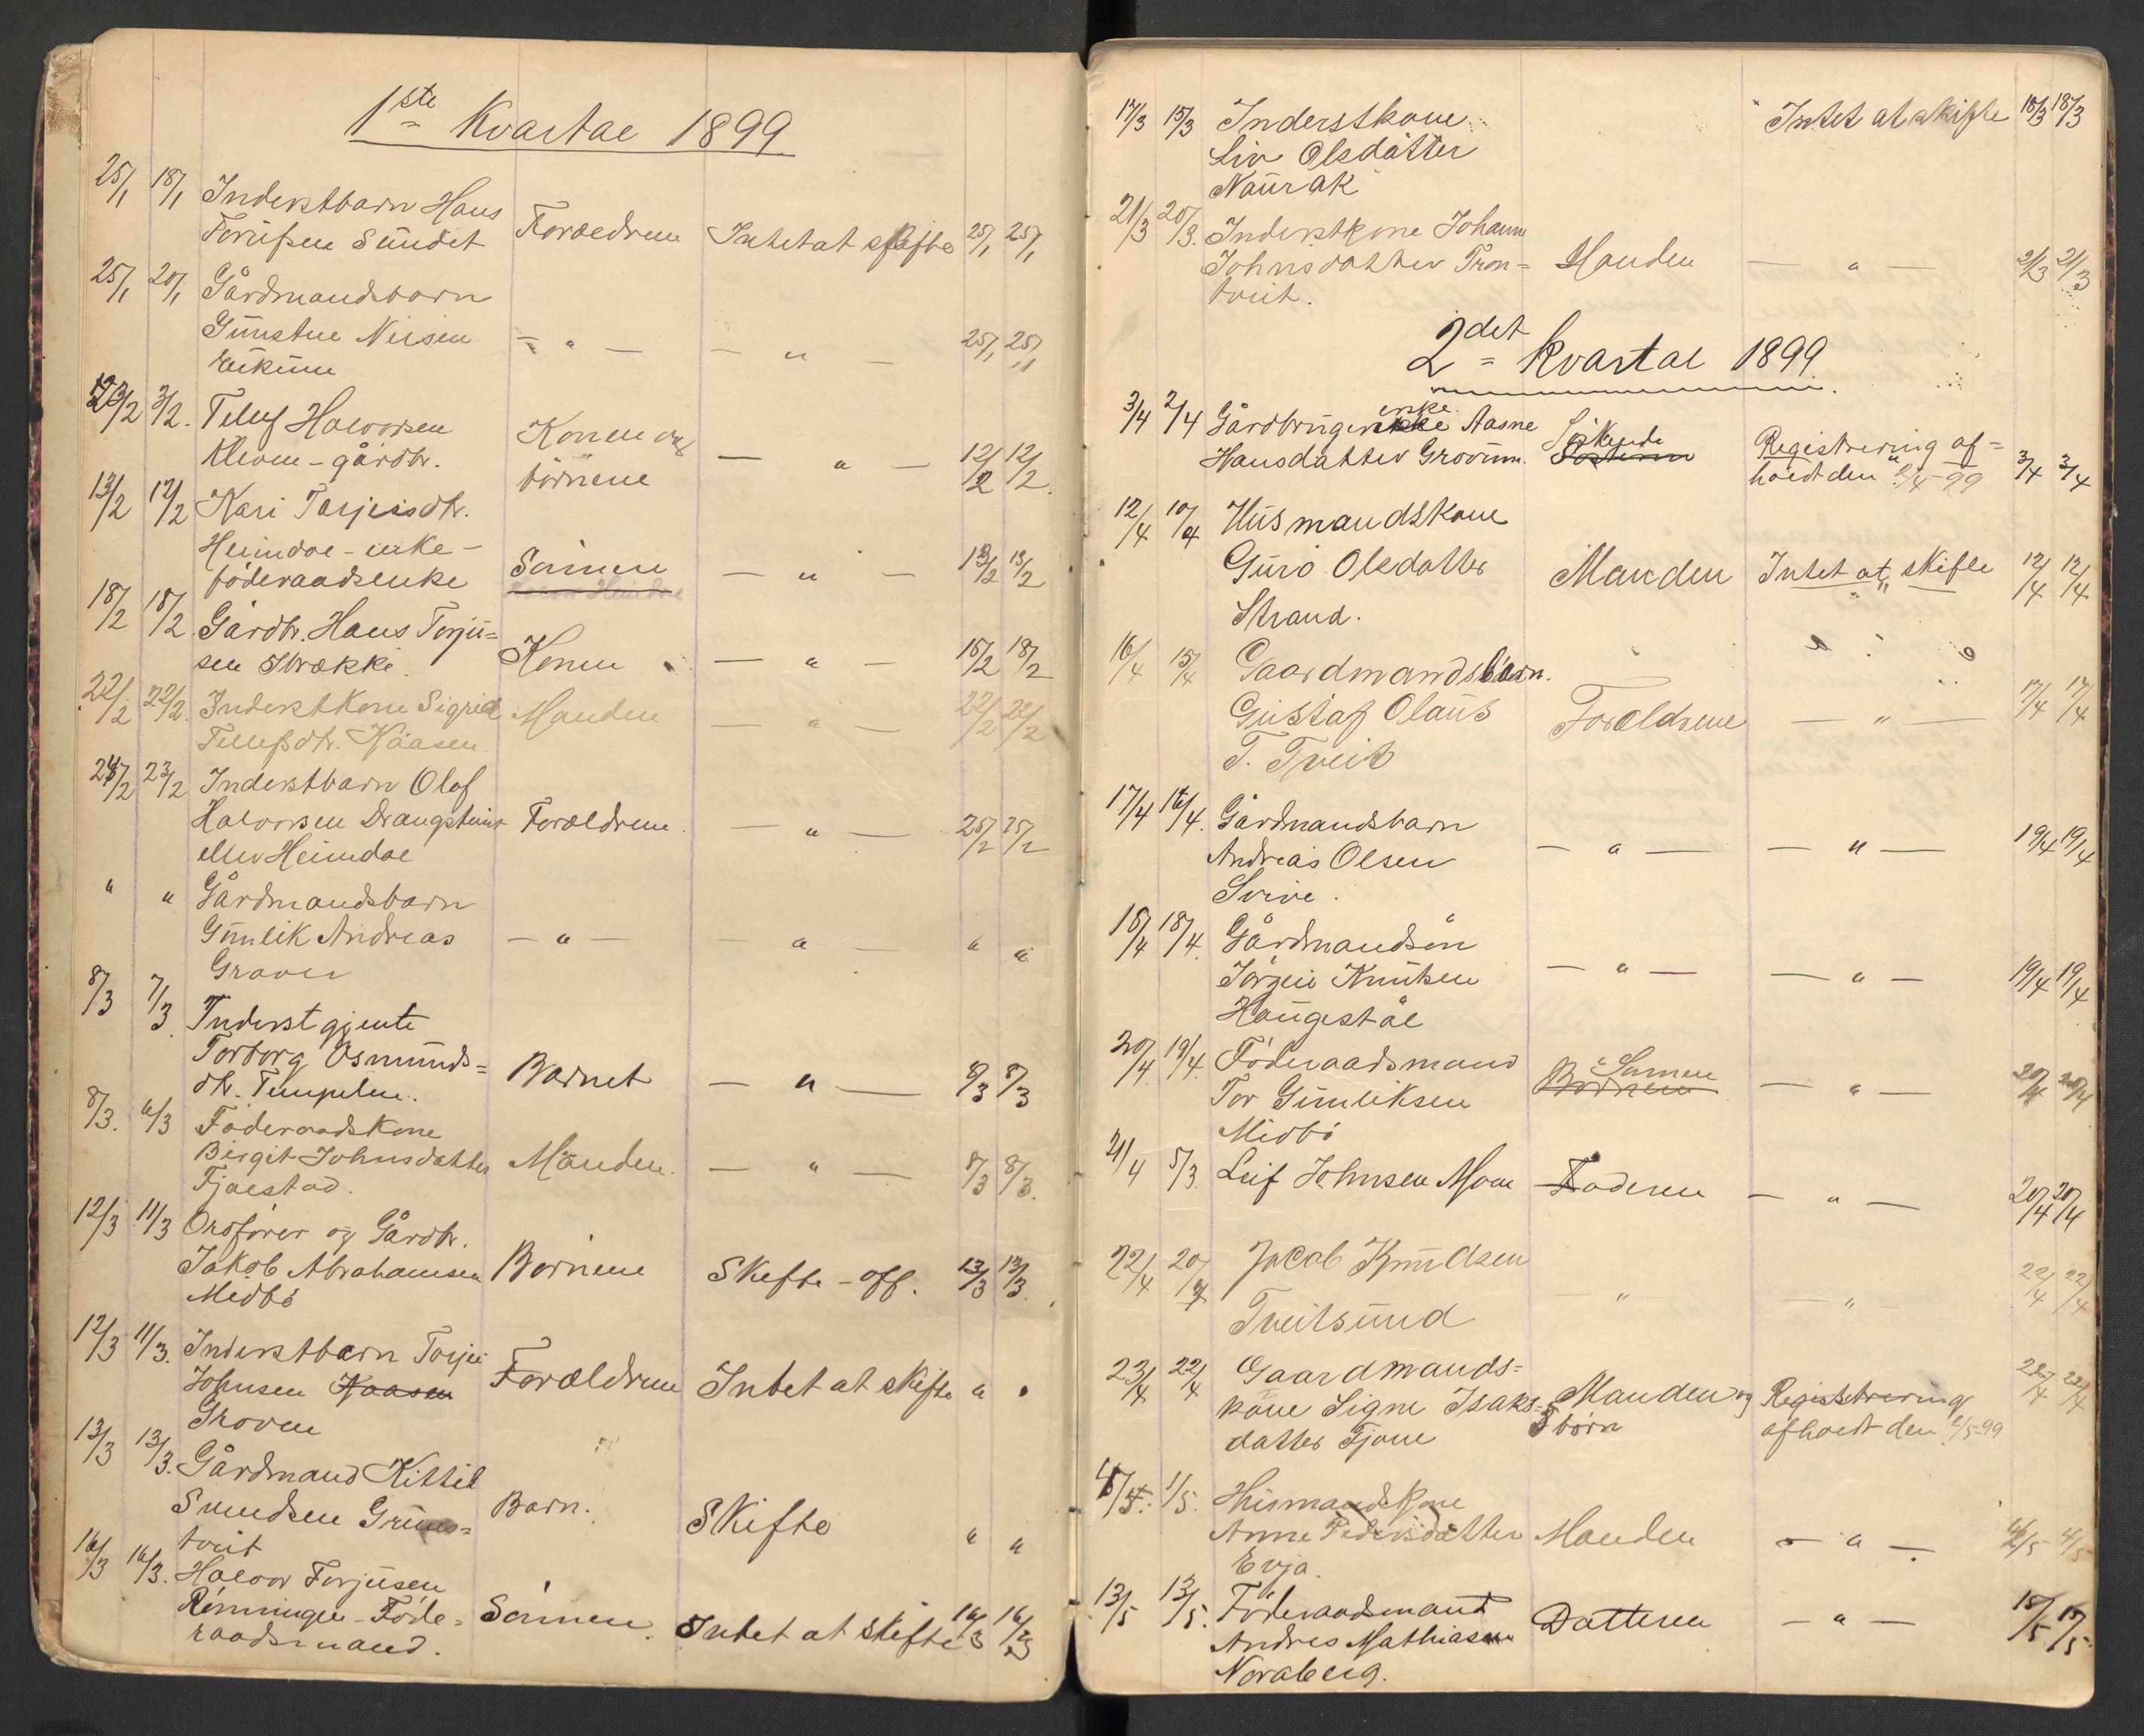 1ste Kvartal 1899
25/1 18/1 Inderstbarn Hans
Torjusen Sundet Forældrene Intet at skifte 25/1 25/1
25/1 20/1 Gårdmandsbarn
Gunstne Neisen — " — — " — 25/1 25/1
12/2 3/2. Tellef Halvorsen Konen og
Kleven - gårdbr. börnene — " — 12/2 12/2.
13/2 12/2 Kari Torjeisdtr.
Heimdal - enke -
föderaadsenke Sönnen — " — 13/2 13/2
18/2 18/2. Gårdbr. Hans Torju=
sen Strækki. Konen — " — 18/2 18/2
22/2 22/2. Inderstkone Sigrid Manden — " — 22/2 22/2
Tellefsdtr. Kåasen
23/2 Inderstbarn Olaf
Halvorsen Drangsteint Forældrene — " — 25/2 25/2
eller Heimdal
" " Gårdmandsbarn
Gunlik Andreas — " — — " — " "
Graver
8/3 7/3. Inderstgjente
Torborg Osmunds=
dtr. Tempelen. Barnet — " — 8/3 8/3
8/3. 6/3 Föderaadskone
Birgit Johnsdatter Manden. — " — 8/3 8/3.
Fjalestad.
12/3 11/3 Ordförer og Gårdbr.
Jakob Abrahamsen Börnene Skifte - off. 13/3 13/3.
Midbö
12/3 11/3. Inderstbarn Torjei
Johnsen Kaasen Forældrene Intet at skifte " "
Groven
13/3 13/3. Gårdmand Kittil
Svendsen Gruns= Barn. Skifte " "
tveit
16/3 16/3. Halvor Torjusen
Rönningen - Föde= Sönnen. Intet at skifte 16/3 16/3
raadsmand.
17/3 15/3 Inderstkone Intet at skifte 18/3 18/3
Liv Olsdatter
Naurak
21/3 20/3. Inderstkone Johanne
Johnsdatter Tron= Manden — " — 21/3 21/3
tveit.
2det Kvartal 1899
3/4 2/4 Gårdbrugerske Aasne Söskende Registrering af=
Hansdatter Grovum. holdt den 3/4 3/4
12/4 10/4 Husmandskone
Guro Olsdatter Manden Intet at skifte 12/4 12/4
Strand.
16/4 15/4 Gaardmandsbarn.
Gustaf Olaus Forældrene — " — 17/4 17/4
T. Tveit
17/4 16/4. Gårdmandsbarn
Andreas Olsen — " — — " — 19/4 19/4
Svive.
18/4 18/4. Gårdmandsön
Jörgen Knutsen — " — — " — 19/4 19/4
Haugestål
20/4. 19/4. Föderaadsmand Sönnen
Tor Gunliksen Börnene — " — 20/4 20/4
Midbö
21/4 5/3. Leif Johnsen Moen Faderen — " — 20/4 20/4
22/4 20/4 Jacob Knudsen — " — — " — 22/4 22/4
Tveitsund
23/4 22/4 Gaardmands=
kone Signe Isaks= Manden og Registrering 22/4 22/4
datter Fjone börn afholdt den
1/5. Husmandskone
Anne Pedersdatter Manden — " — 4/5
Evja.
13/5 13/5. Föderaadsmand
Andres Mathiasen Datteren — " — 15/5 15/5
Noraberg.